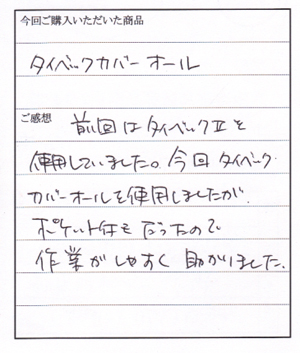 今回ご購入いただいた商品
タイベックカバーオール
ご感想
前回はタイベックⅡを
使用していました。今回タイベック
カバーオールを使用しましたが
ポケット付きだったので
作業がしやすく助かりました。